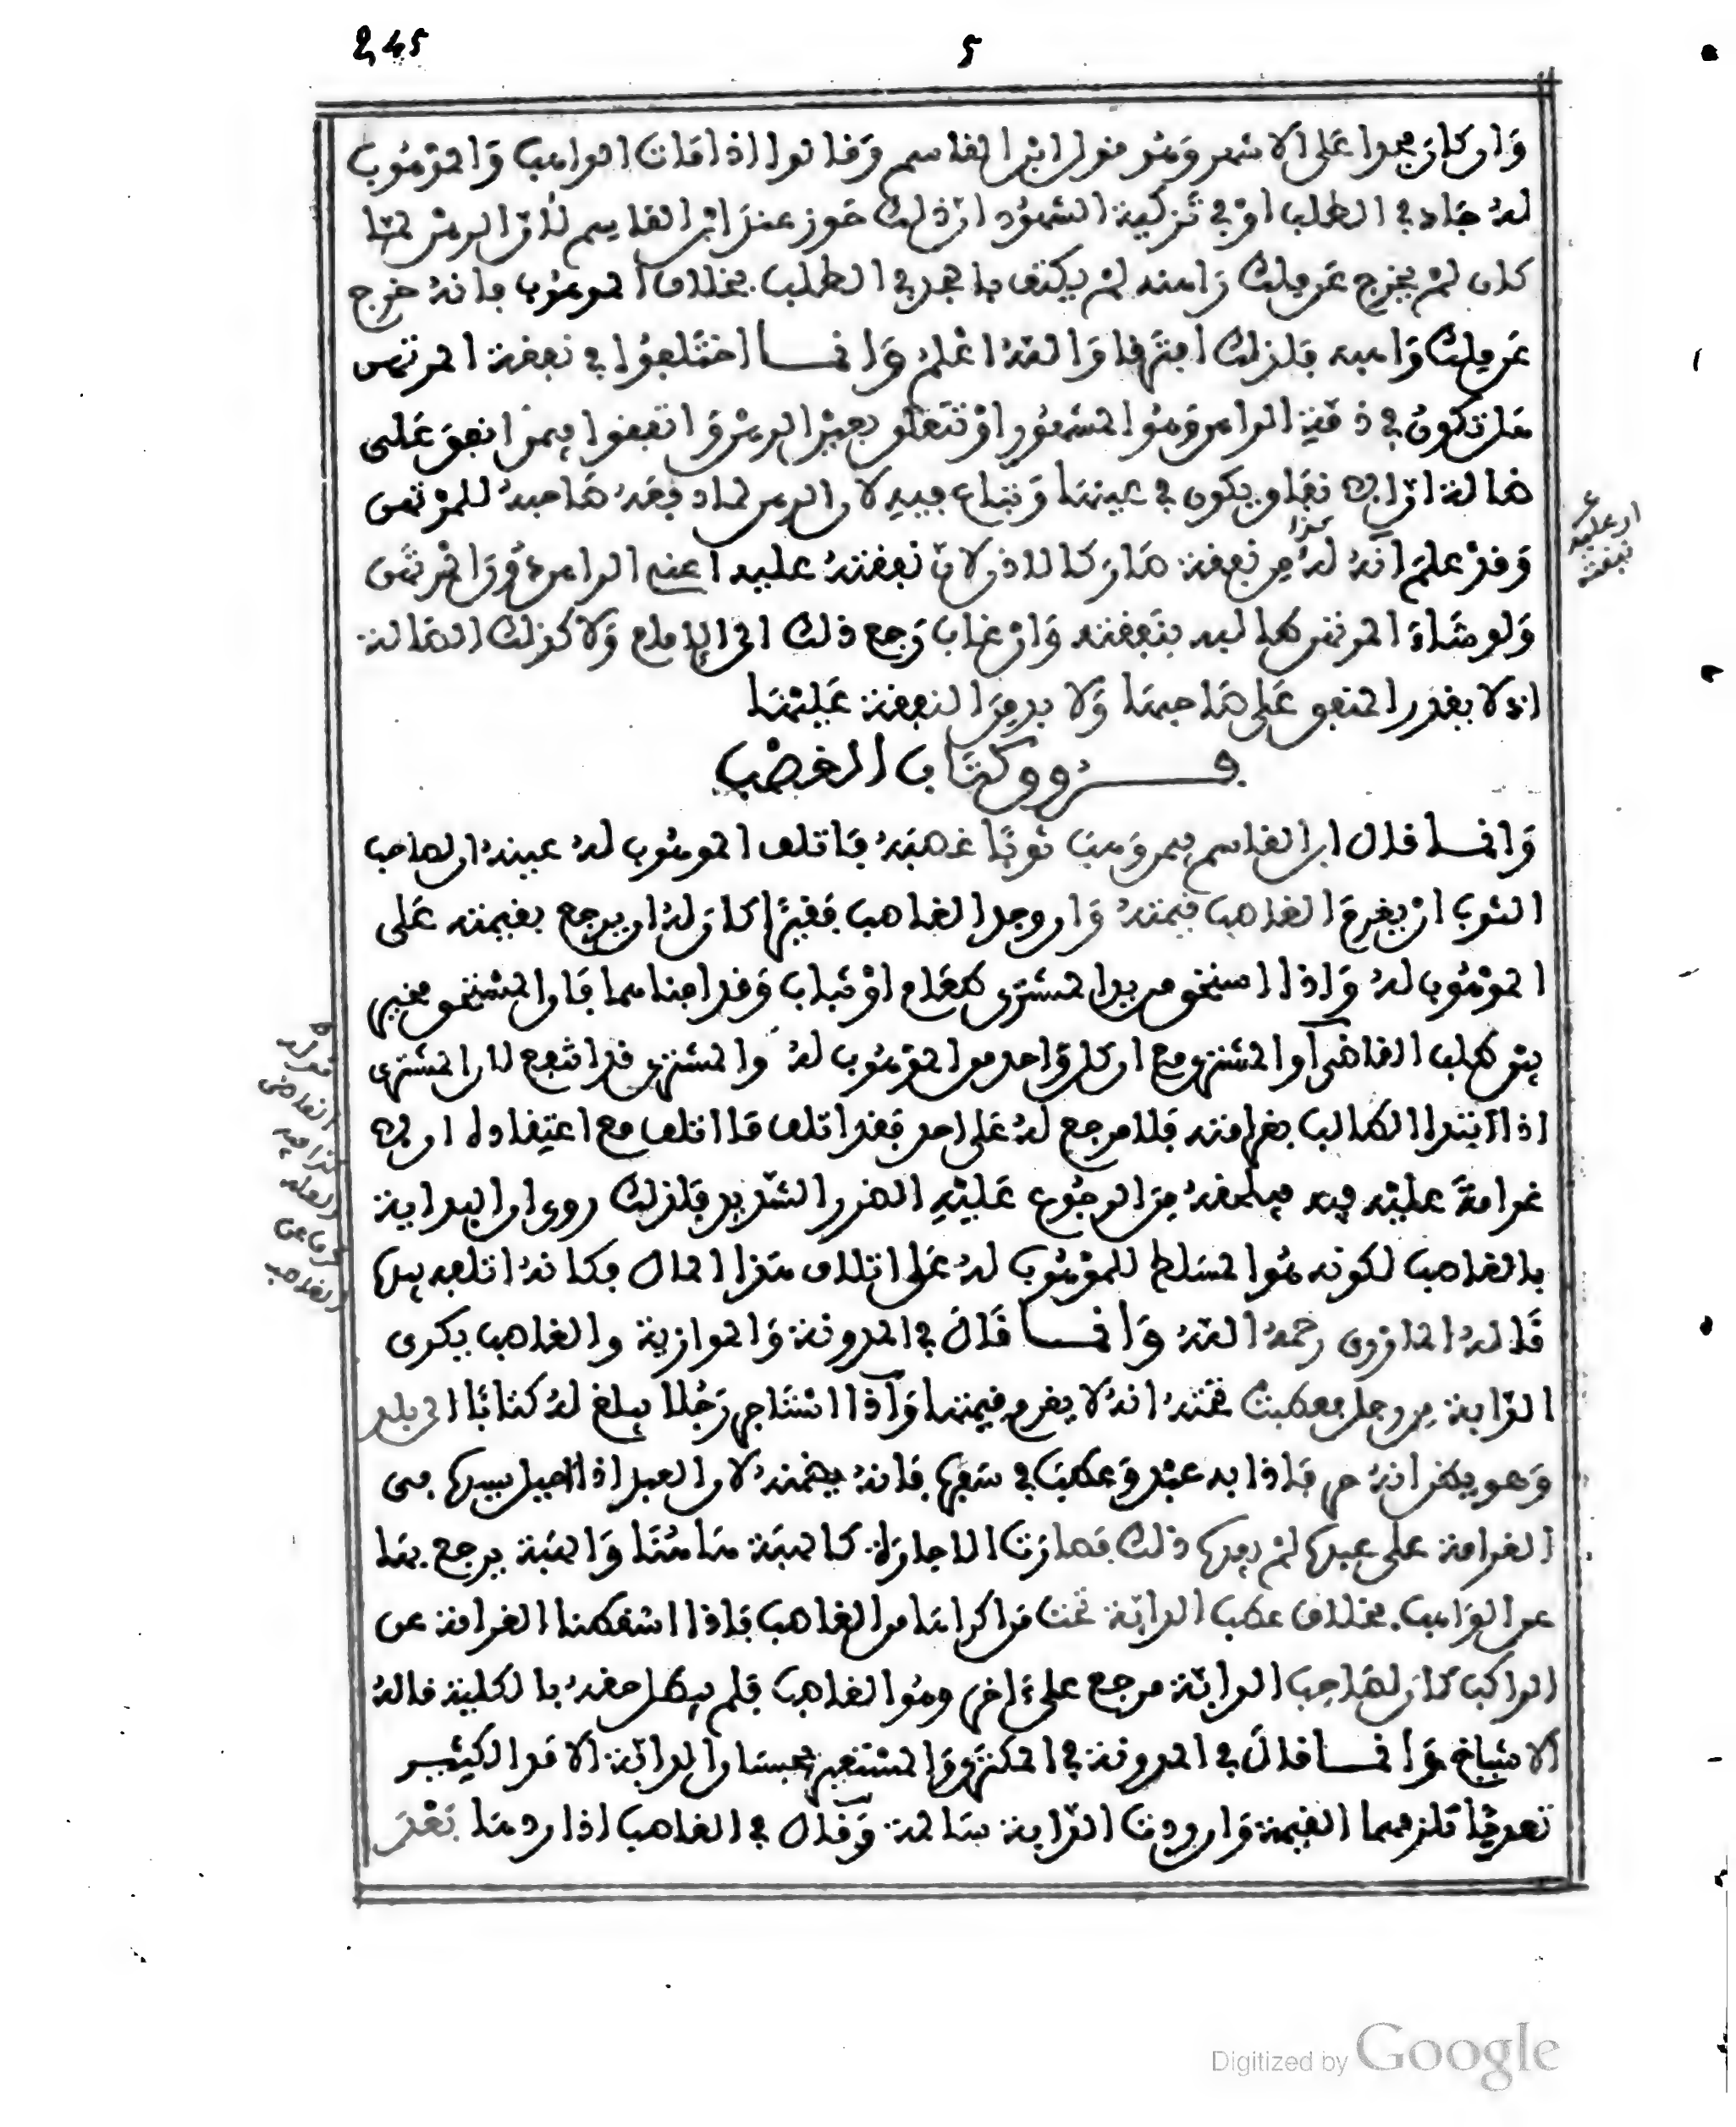 245
5
وان كان مجدا على الاشهر وهو قول ابن القاسم وقالوا اذا مات الواهب والموهوب
له جاد في الطلب او في تزكية الشهود ان ذلك حوز عند ابن القاسم لان الرهن لما
كان لم يخرج عن ملك راهنه لم يكتف بالجد في الطلب بخلاف الموهوب فانه خرج
عن ملك واهبه فلذلك افترقا والله اعلم وانما اختلفوا في نفقة المرتهن
هل تكون في ذمة الراهن وهو المشهور او تتعلق بعين الرهن واتفقوا فيمن انفق على
ضالة ان ابى نفاو يكون في عينها وتباع فيه لان الرهن لما د فعه صاحبه للمرتهن
وقد علم انه له من نفقة صار كالاذن لان نفقته عليه اعني الراهن دون المرتهن
ولو شاء المرتهن طالبه بنفقته وان غاب رجع ذلك الى الامام ولا كذلك الضالة
اذ لا يقدر المنفق على صاحبها ولا بد من النفقة عليها
فروق كتاب الغصب
وانما قال ابن القاسم فيمن وهب ثوبا غصبه فاتلف الموهوب له عينه ان لصاحب
الثوب ان يغرم الغاصب قيمته وان وجد الغاصب فقيرا كان له ان يرجع بقيمته على
الموهوب له واذا استحق من يد المشترى طعام او ثياب وقد افناهما فان المستحق مخير
في طلب الغاصب او المشترى مع ان كل واحد من الموهوب له والمشترى قد انتفع لان المشترى
اذا ابتدا الطالب بغرامته فلا مرجع له على احد فقد اتلف ما اتلف مع اعتقاد ان لا
غرامة عليه فيه فيلحقه من الرجوع عليه الضرر الشديد فلذلك روى ان البداية
بالغاصب لكونه هو المسلط للموهوب له على اتلاف هذا المال فكانه اتلفه بيده
قاله المازرى رحمه الله وانما قال في المدونة والموازية والغاصب يكرى
الدابة من رجل فعطبت تحته انه لا يغرم قيمتها واذا استاجر رجلا يبلغ له كتابا الى بلد
وهو يظن انه حر فاذا به عبد وعطب في سفره فانه يضمنه لان العبد اذا
الغرامة على عبده لم يفده ذلك فصارت الاجارة كالهبة هاهنا والهبة يرجع بها
على الواهب بخلاف عطب الدابة تحت من اكراها من الغاصب فاذا اسقطنا الغرامة عن
الراكب كان لصاحب الدابة مرجع على ءاخر وهو الغاصب فلم يبطل حقه بالكلية قاله
الاشياخ وانما قال في المدونة في المكترى والمستعير يحبسان الدابة الامد الكثير
تعديا تلزمهما القيمة وان ردت الدابة سالمة وقال في الغاصب اذا ردها بعد
ان عليه
نفقة
القاضى
العلم
الغاصب
Digitized by Google